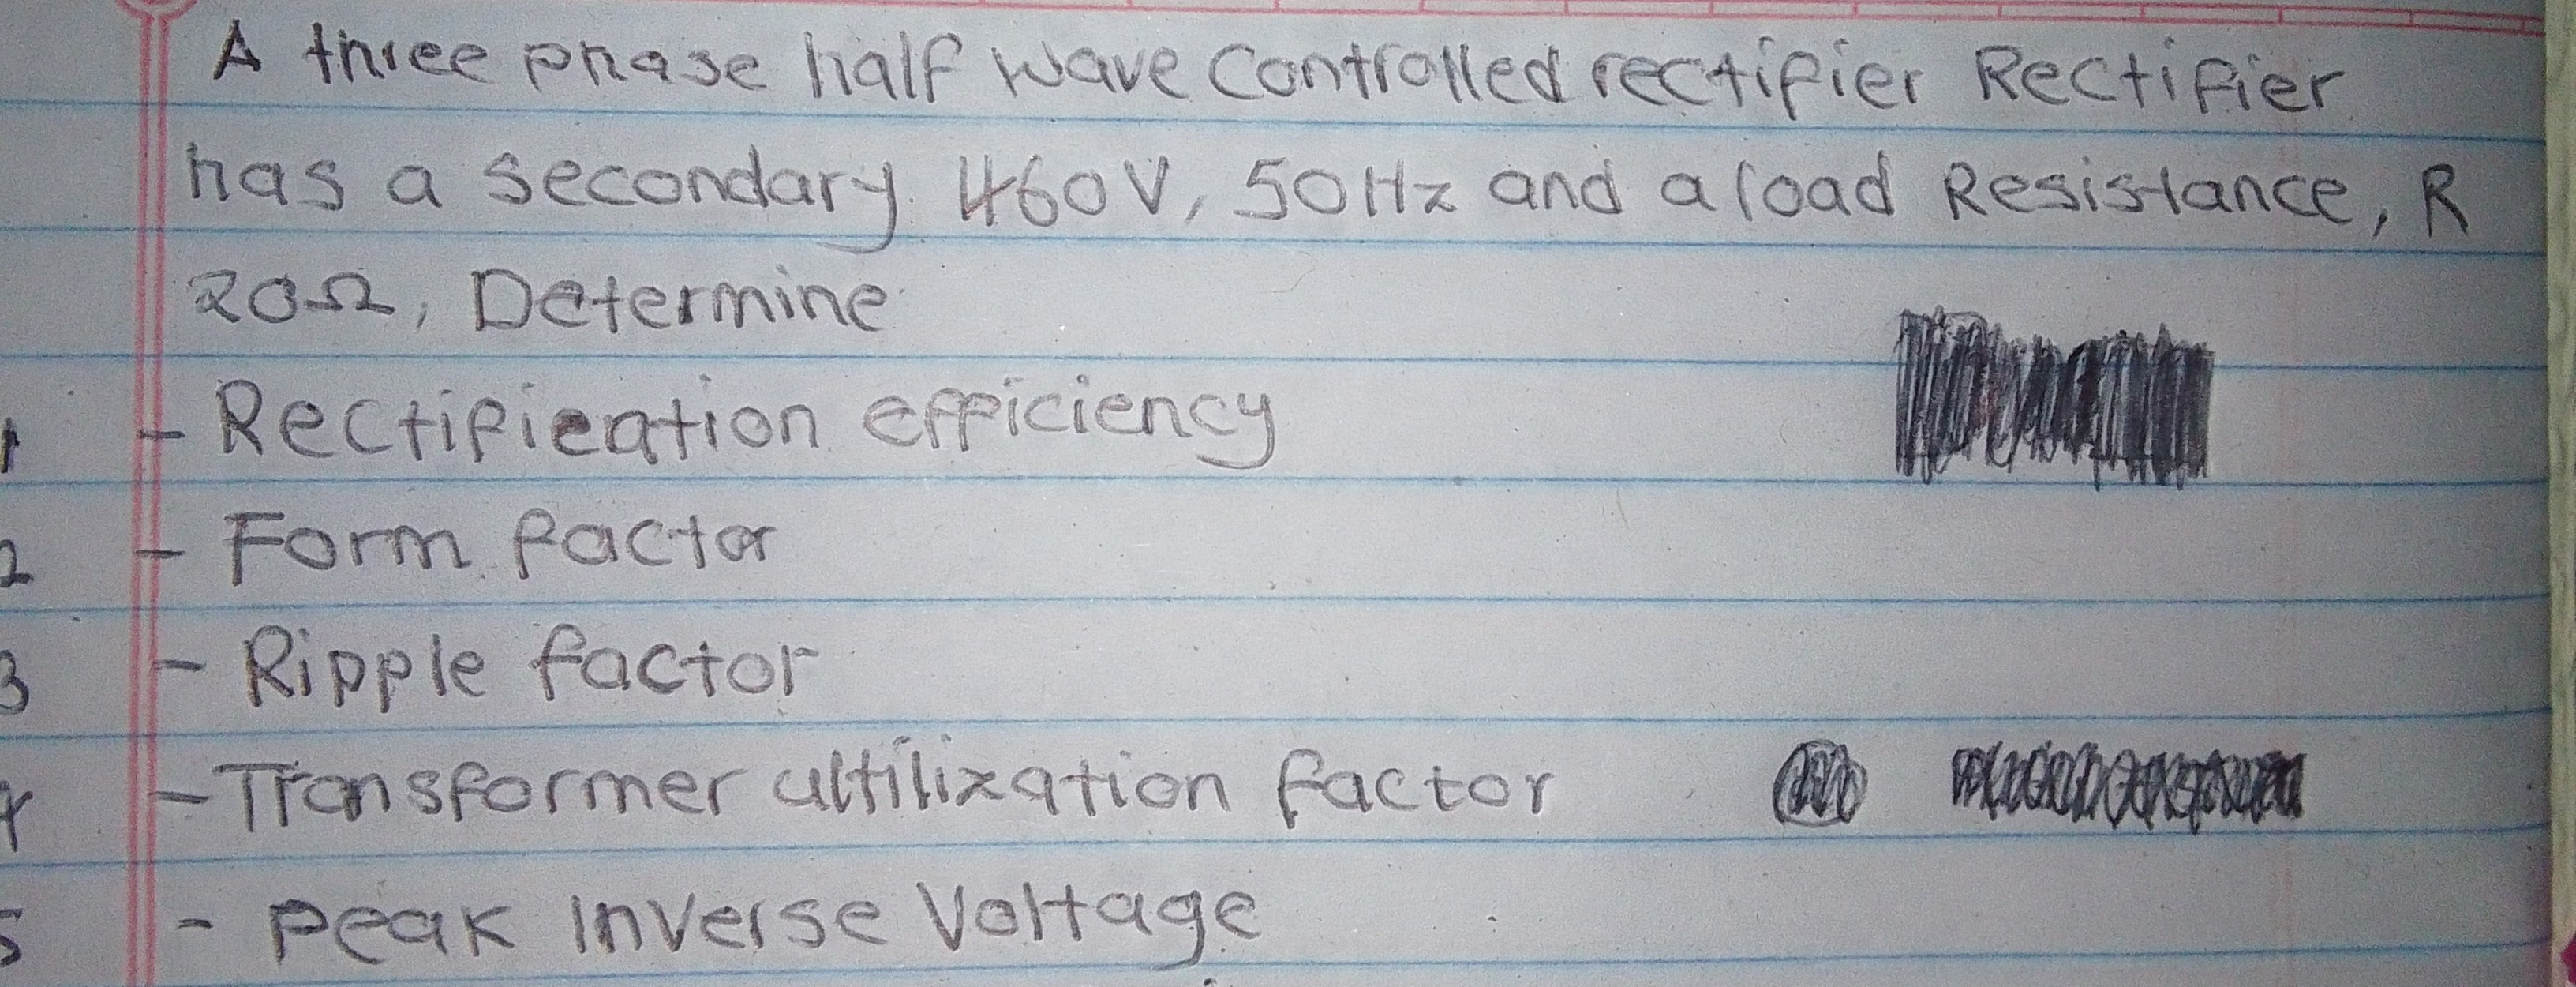 A three phase half wave Controlled rectifier Rectifier
has a secondary 460V, 50Hz and a load Resistance, R
20Ω, Determine
1 - Rectification efficiency
2 - Form factor
3 - Ripple factor
4 - Transformer ultilization factor
5 - Peak Inverse Voltage